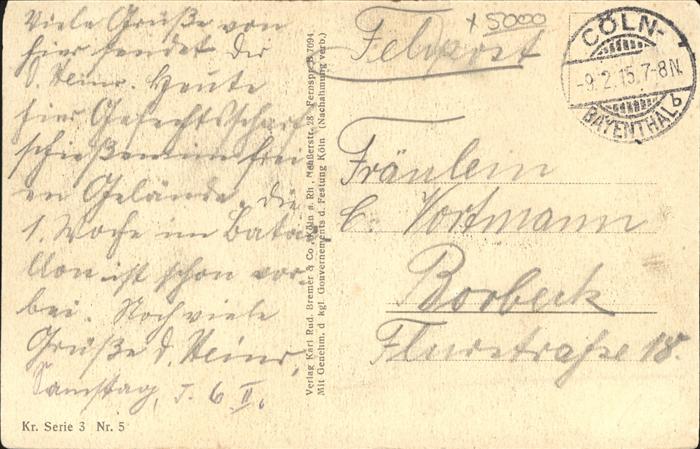 Viele Grüße von
hier sendet Dir
D. Heinr. Heute
hier Gefechtsscharf
schießen im frei
en Gelände, die
1. Woche im Batai
llon ist schon vor-
bei. Noch viele
Grüße D. Heinr,
Samstag, d. 6 II,
Kr. Serie 3 Nr. 5
Verlag Karl Rud. Bremer & Co., Köln a. Rh., 28 Fernspr. B 7094
Mit Genehm. d kgl. Gouvernements d. Festung Köln (Nachahmung verb.)
x 5000
Feldpost
CÖLN-
-9.2.15.7-8N.
BAYENTHAL b
Fräulein
C. Vortmann
Borbeck
Flurstraße 18.